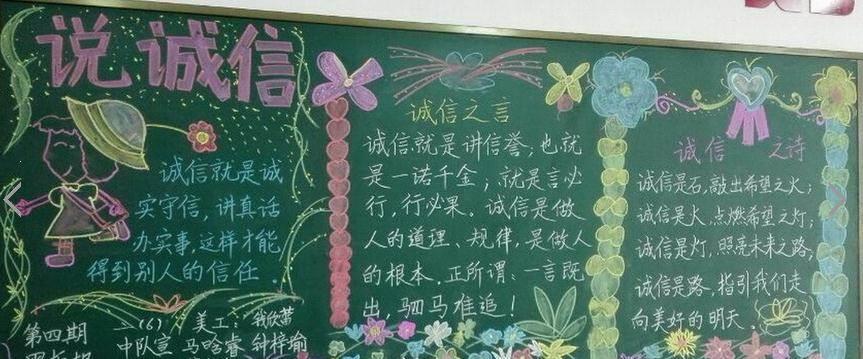 说诚信
诚信就是诚
实守信，讲真话
办实事，这样才能
得到别人的信任．
第四期
二（6）美工：
中队宣 马晗睿 钟梓瑜
诚信之言
诚信就是讲信誉；也就
是一诺千金；就是言必
行，行必果。诚信是做
人的道理、规律，是做人
的根本．正所谓：一言既
出，驷马难追！
诚信 之诗
诚信是石，敲出希望之火；
诚信是火，点燃希望之灯；
诚信是灯，照亮未来之路；
诚信是路，指引我们走
向美好的明天。